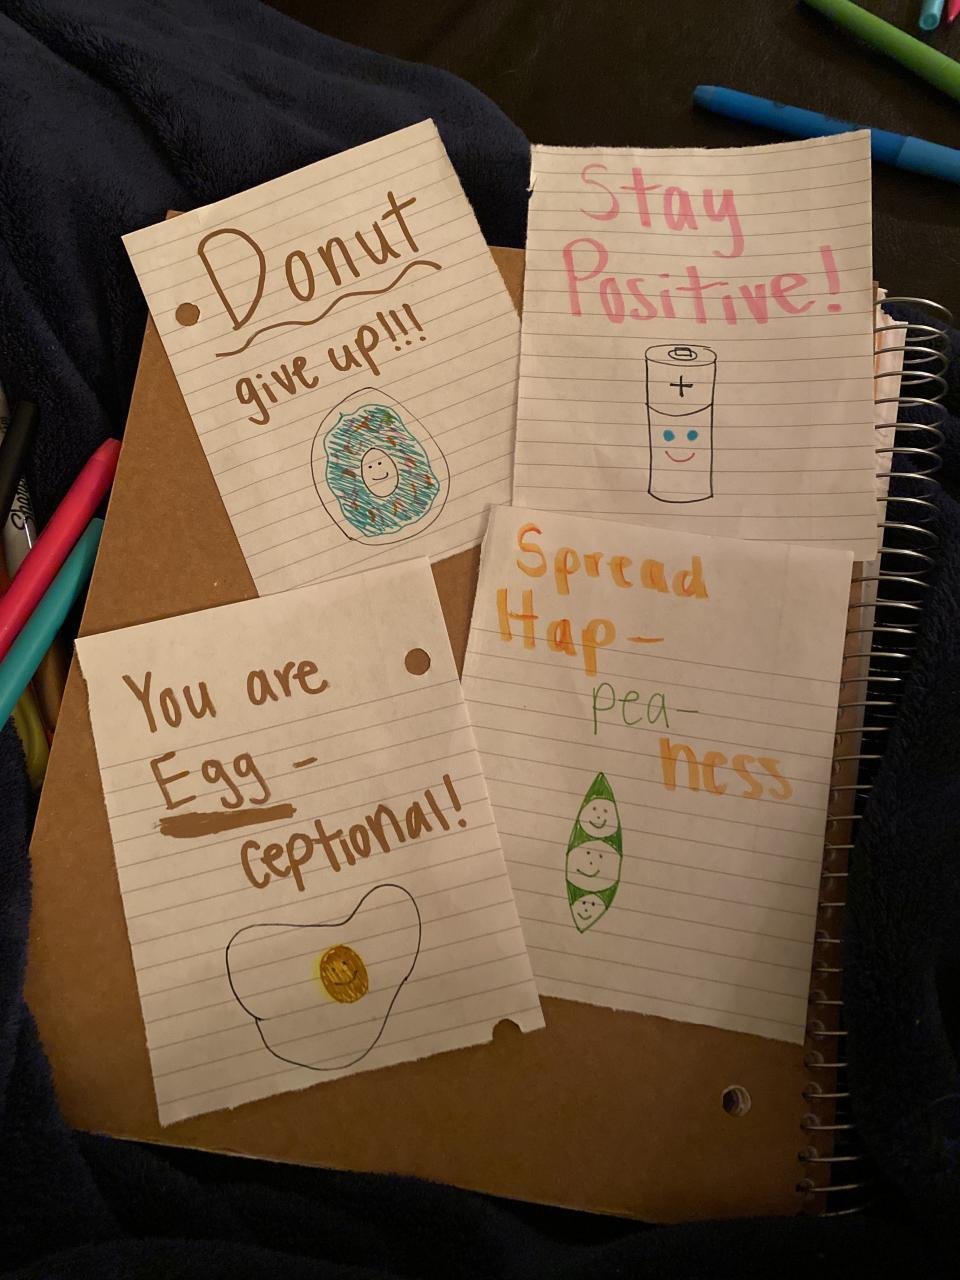 Donut
give up!!!
Stay
Positive!
+
You are
Egg-
ceptional!
Spread
Hap-
pea-
ness